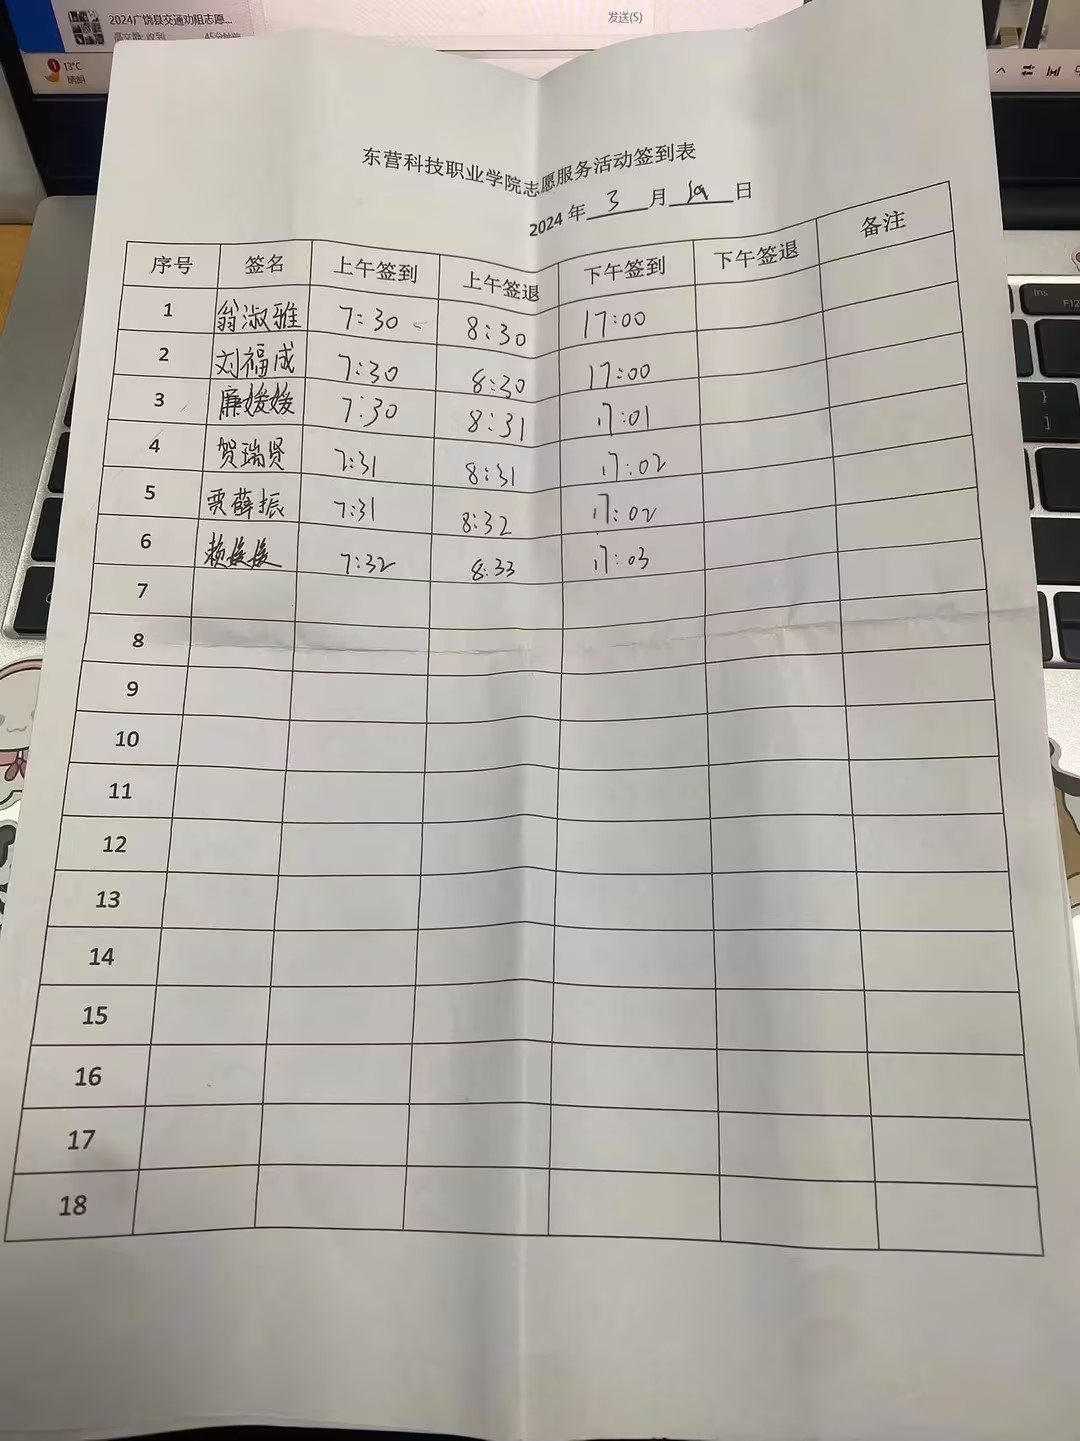 2024广饶县交通劝阻志愿...
45分钟前
发送(S)
1 13°C
晴朗
Ins
F12
}
]
东营科技职业学院志愿服务活动签到表
2024年 3 月 19 日
序号 签名 上午签到 上午签退 下午签到 下午签退 备注
1 翁淑雅 7:30 8:30 17:00
2 刘福成 7:30 8:30 17:00
3 廉媛媛 7:30 8:31 17:01
4 贺瑞贤 7:31 8:31 17:02
5 贾薛振 7:31 8:32 17:02
6 7:32 8:33 17:03
7
8
9
10
11
12
13
14
15
16
17
18